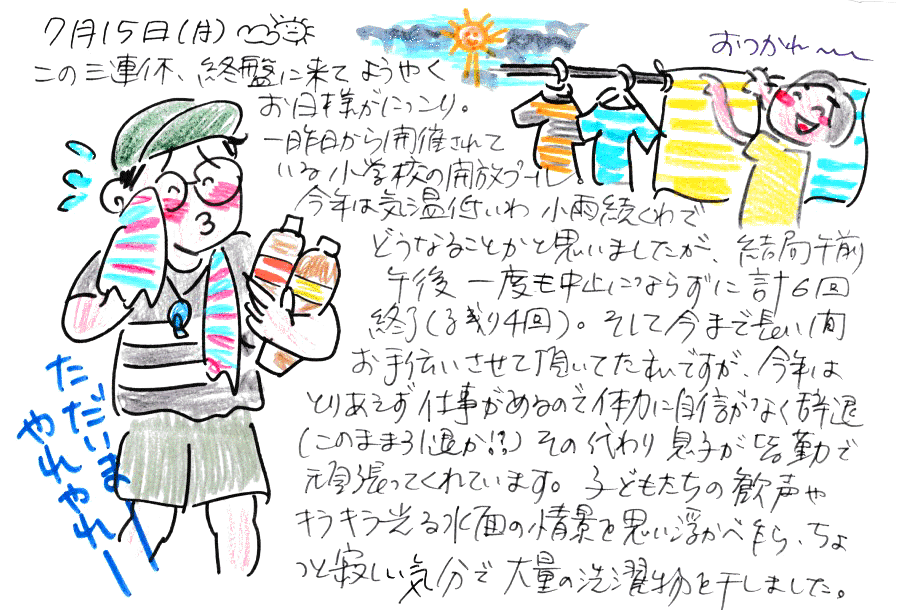 7月15日(月)
この三連休、終盤に来てようやく
お日様がにっこり。
一昨日から開催されて
いる小学校の開放プール。
今年は気温低いわ 小雨続くわで
どうなることかと思いましたが、結局午前
午後 一度も中止にならずに 計6回
終了(残り4回)。そして今まで長い間
お手伝いさせて頂いてたわしですが、今年は
とりあえず 仕事があるので体力に自信がなく辞退
(このまま引退か!?) その代わり 息子が皆勤で
頑張ってくれています。子どもたちの歓声や
キラキラ光る水面の情景を思い浮かべながら、ちょ
っと寂しい気分で 大量の洗濯物を干しました。
おつかれ〜
ただいまー
やれやれー